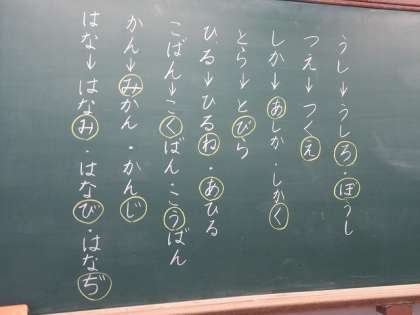 うし→うしろ・ぼうし
つえ→つくえ
しか→あしか・しかく
とら→とびら
ひる→ひるね・あひる
こばん→こくばん・こうばん
かん→みかん・かんじ
はな→はなみ・はなび・はなぢ